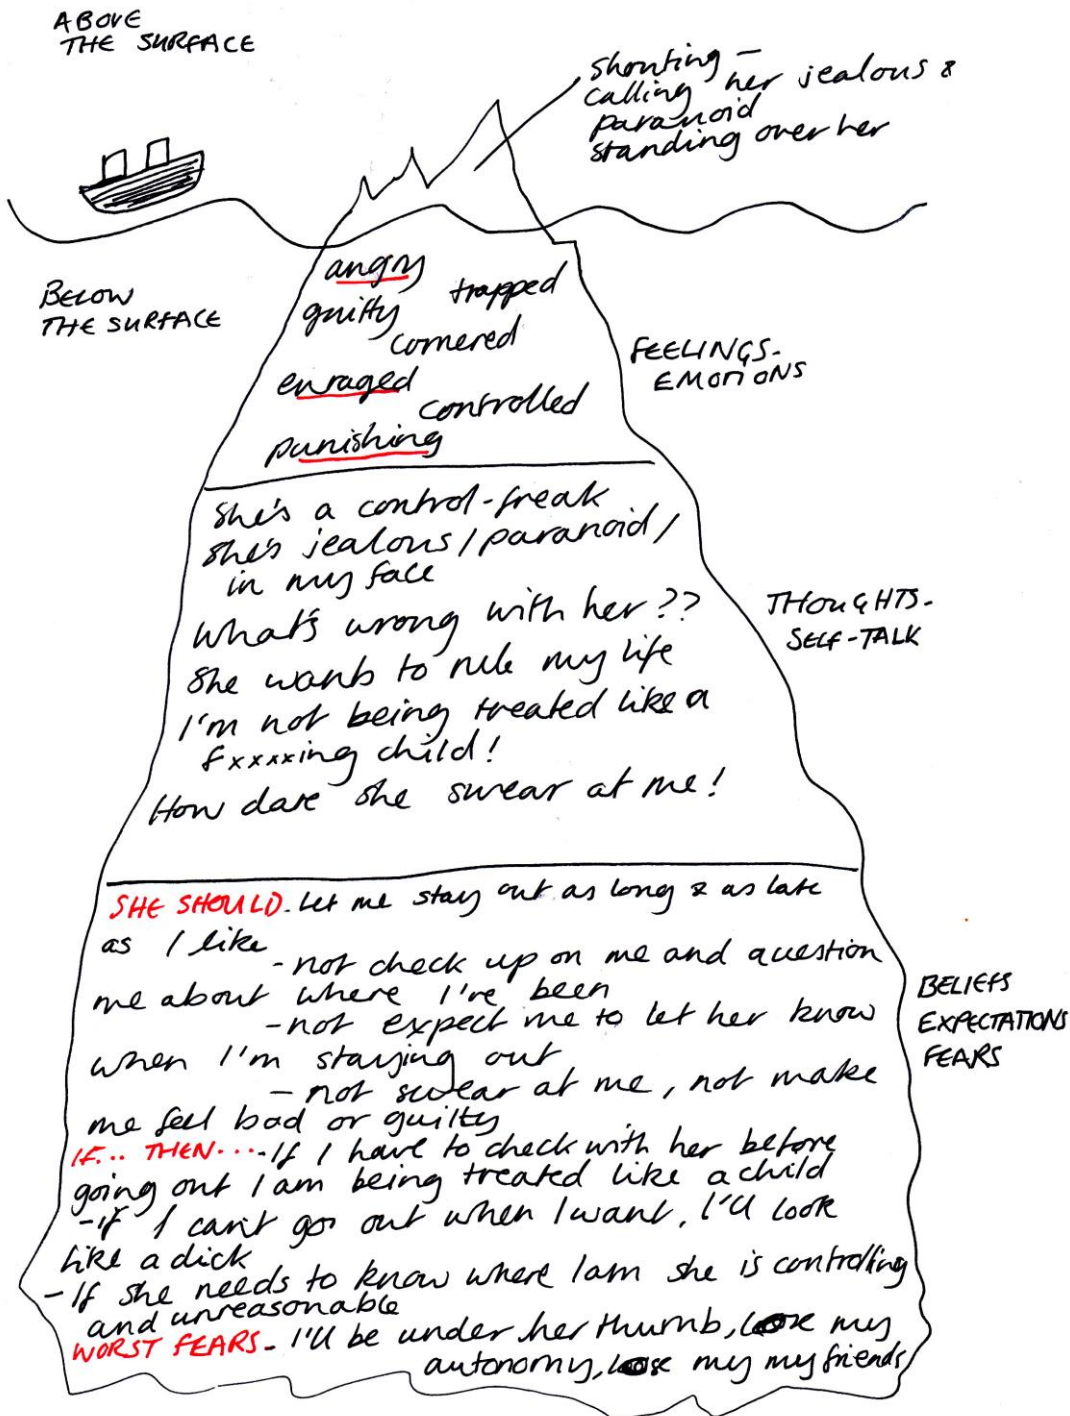 ABOVE
THE SURFACE
shouting -
calling her jealous &
paranoid
standing over her
BELOW
THE SURFACE
angry
trapped
guilty
cornered
enraged
controlled
punishing
FEELINGS-
EMOTIONS
She's a control-freak
She's jealous / paranoid /
in my face
What's wrong with her??
She wants to rule my life
I'm not being treated like a
fxxxxing child!
How dare she swear at me!
THOUGHTS-
SELF-TALK
SHE SHOULD. Let me stay out as long & as late
as I like
- not check up on me and question
me about where I've been
- not expect me to let her know
when I'm staying out
- not swear at me, not make
me feel bad or guilty
IF... THEN...- If I have to check with her before
going out I am being treated like a child
- if I can't go out when I want, I'll look
like a dick
- If she needs to know where I am she is controlling
and unreasonable
WORST FEARS- I'll be under her thumb, lose my
autonomy, lose my my friends
BELIEFS
EXPECTATIONS
FEARS